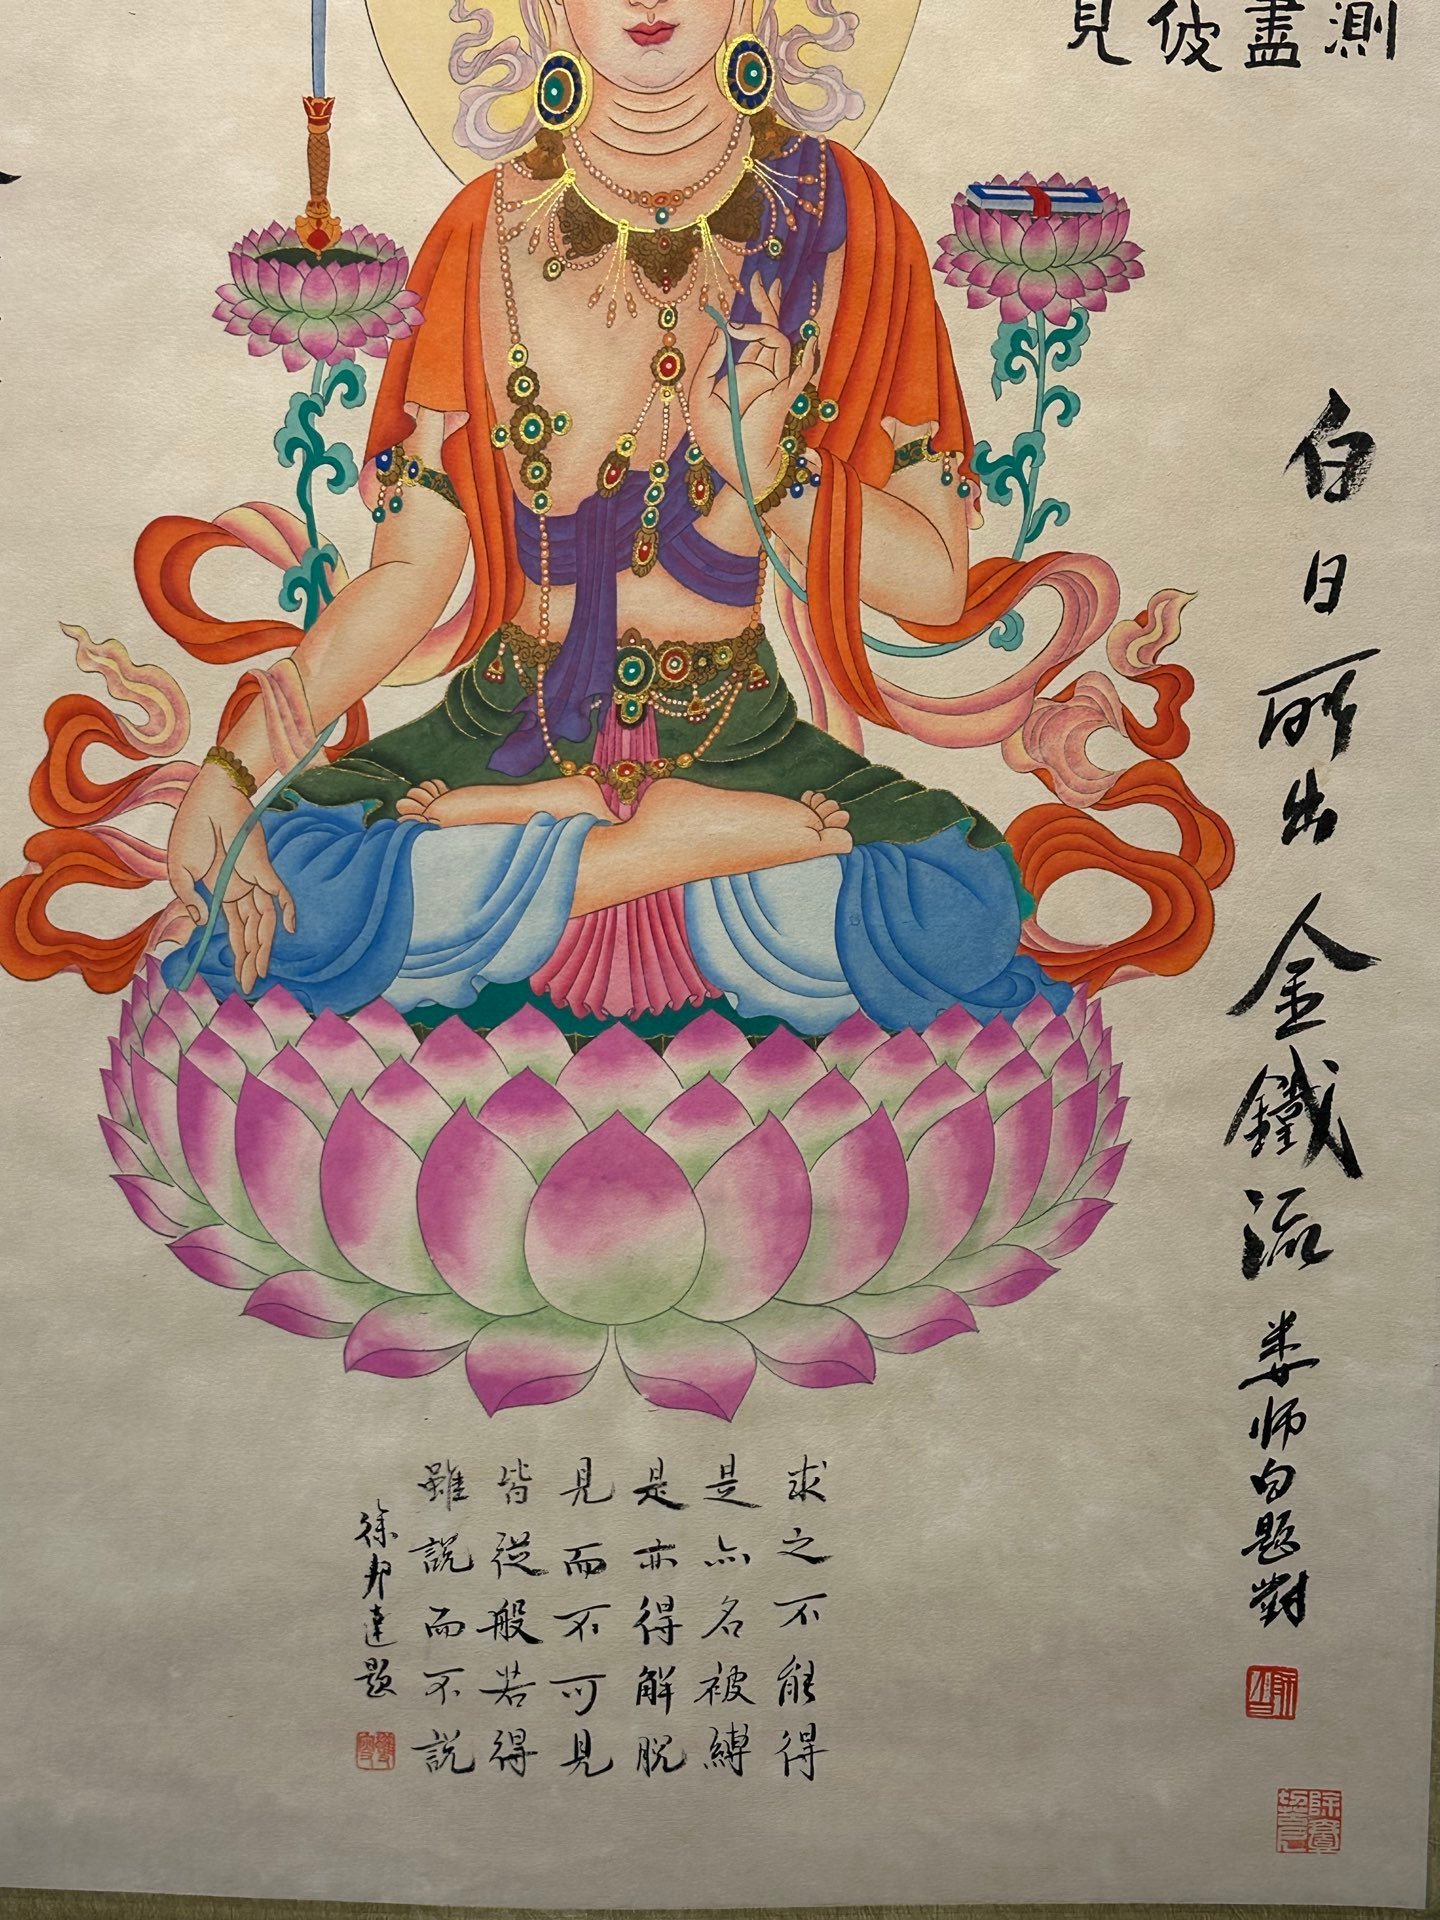 測
盡
彼
見
白日所出金鐵流
娄师白题對
求之不能得
是亦名被縛
是亦得解脫
見而不可見
皆從般若得
雖說而不說
徐邦達題